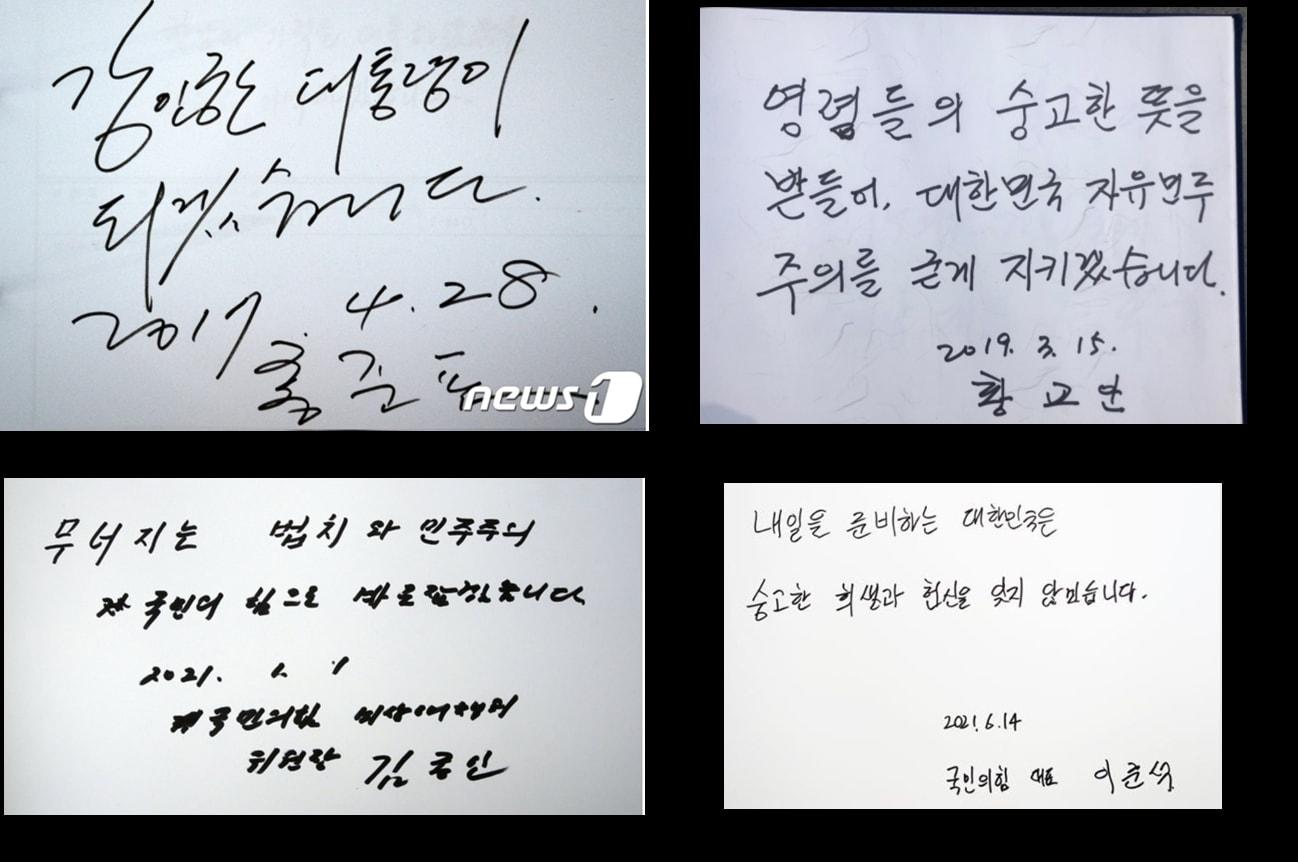 강인한 대통령이
되겠습니다.
2017. 4. 28.
홍준표
news1
영령들의 숭고한 뜻을
받들어, 대한민국 자유민주
주의를 굳게 지키겠습니다.
2019. 3. 15.
황교안
무너지는 법치와 민주주의
국민의 힘으로 바로잡겠습니다
2021. 1. 1
국민의힘 비상대책위
위원장 김종인
내일을 준비하는 대한민국은
숭고한 희생과 헌신을 잊지 않겠습니다.
2021. 6. 14
국민의힘 대표 이준석